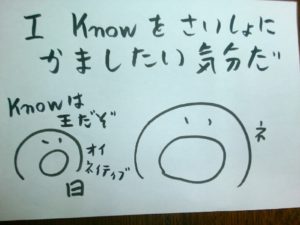 I Knowをさいしょに
かましたい気分だ
Knowは
王だぞ
オイ
ネイティブ
日
ネ